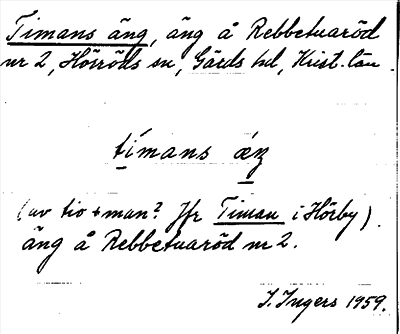 Timans äng, äng å Rebbetuaröd
nr 2, Hörröds sn, Gärds hd, Krist. län.
tímans æŋ
(av tio + man? Jfr Timan i Hörby).
äng å Rebbetuaröd nr 2.
I. Ingers 1959.